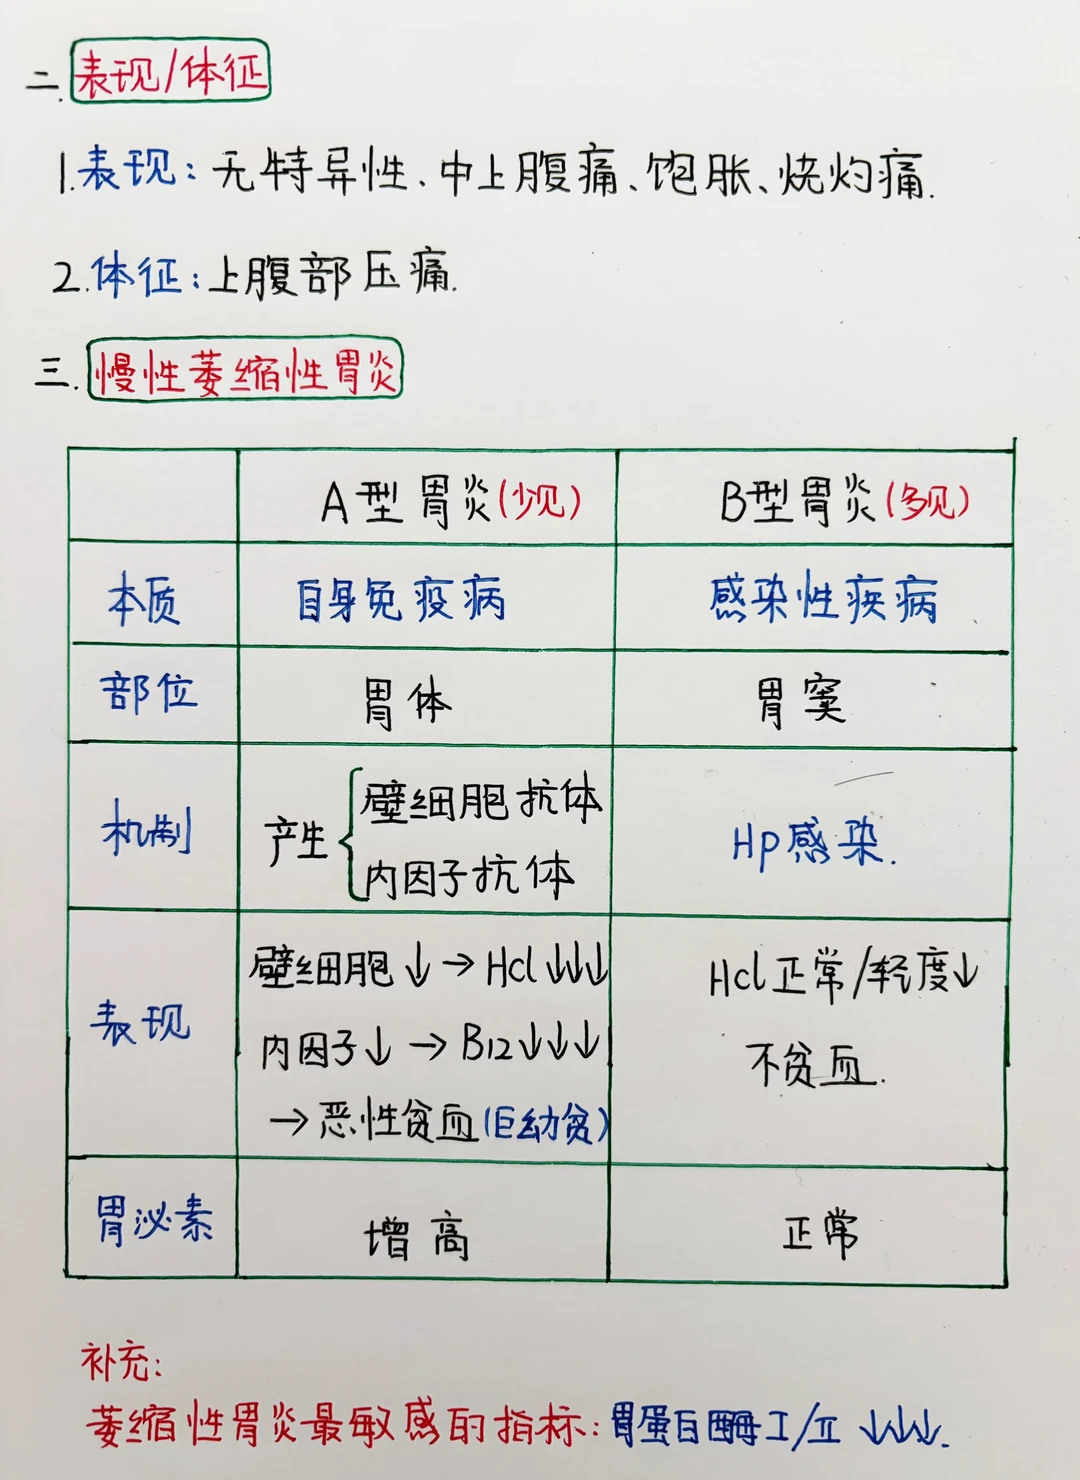 二.表现/体征
1.表现:无特异性、中上腹痛、饱胀、烧灼痛.
2.体征:上腹部压痛.
三.慢性萎缩性胃炎
A型胃炎(少见) B型胃炎(多见)
本质 自身免疫病 感染性疾病
部位 胃体 胃窦
机制 产生{壁细胞抗体 内因子抗体 Hp感染.
表现 壁细胞↓→Hcl↓↓↓ Hcl正常/轻度↓
内因子↓→B12↓↓↓ 不贫血.
→恶性贫血(巨幼贫)
胃泌素 增高 正常
补充:
萎缩性胃炎最敏感的指标:胃蛋白酶I/II↓↓↓.